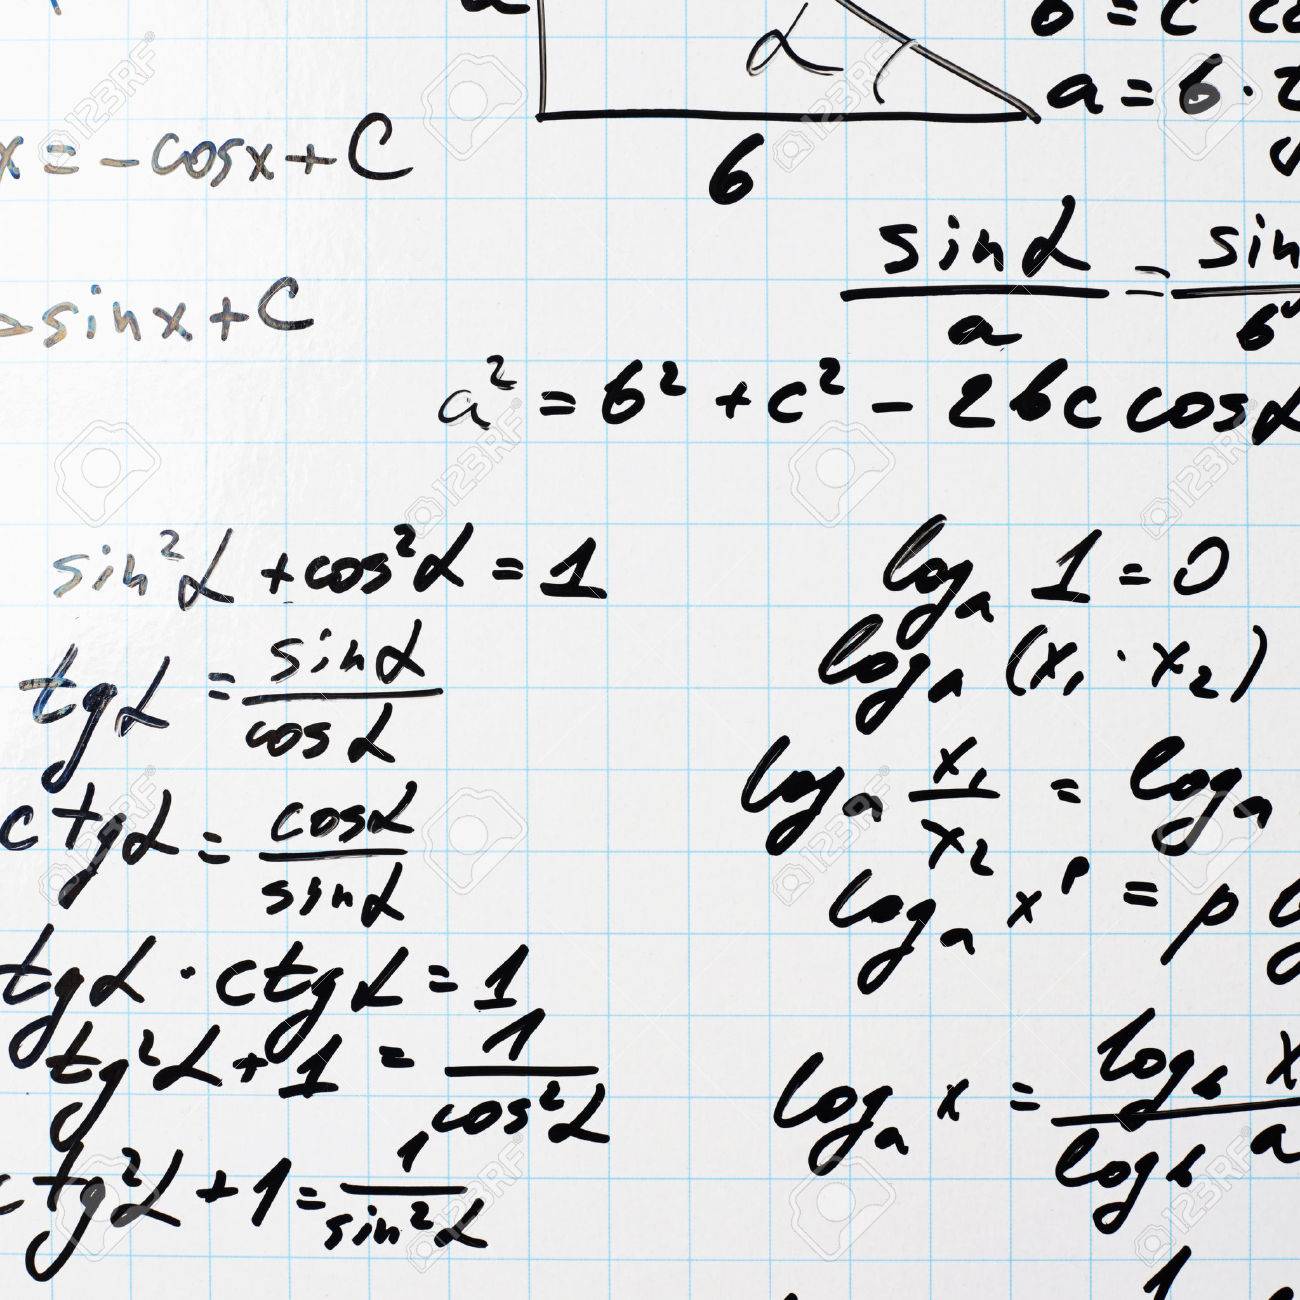 a
α
b = c
a = b ·
x = -cosx + C
b
sinα / a = sin
sinx + C
a² = b² + c² - 2bc cosα
sin²α + cos²α = 1
tgα = sinα / cosα
ctgα = cosα / sinα
tgα · ctgα = 1
tg²α + 1 = 1 / cos²α
ctg²α + 1 = 1 / sin²α
logₐ 1 = 0
logₐ (x₁ · x₂)
logₐ x₁ / x₂ = logₐ
logₐ xᵖ = p
logₐ x = log_b x / log_b a
1
123RF